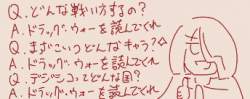 Q.どんな戦い方するの?
A.ドラッグ・ウォーを読んでくれ
Q.まずこいつどんなキャラ?
A.ドラッグ・ウォーを読んでくれ
Q.デジシコってどんな国?
A.ドラッグ・ウォーを読んでくれ